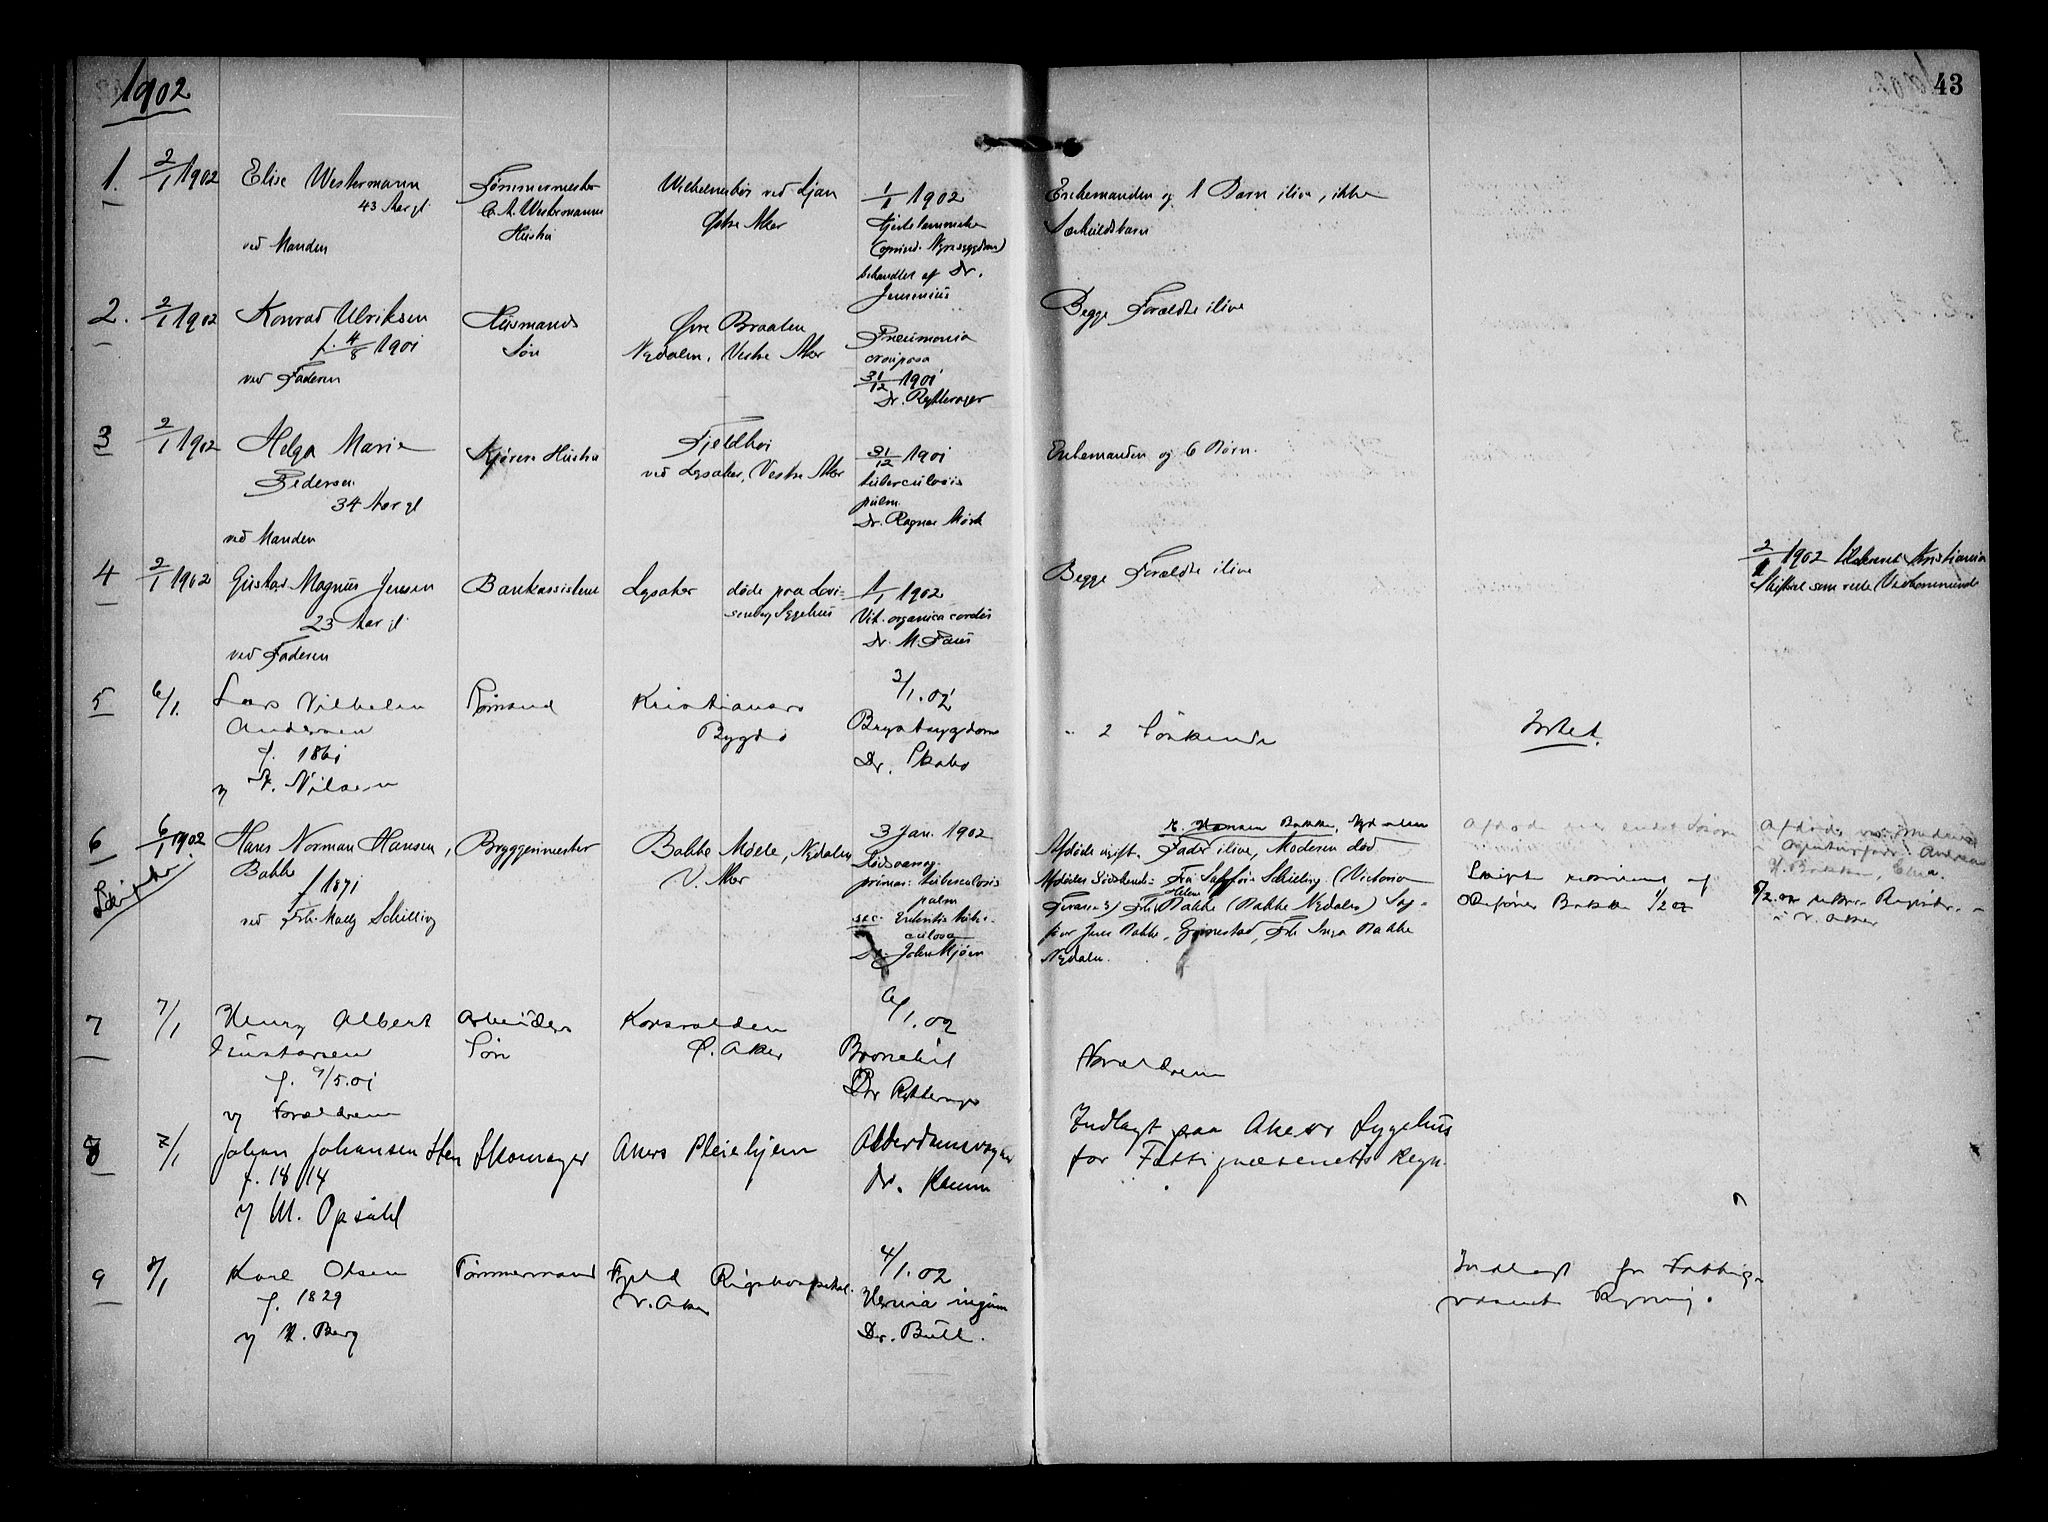 1902
43
1.
2/1 1902
Elise Westermann
43 Aar gl
ved Manden
Tømmermester
C. A. Westermanns
Hustru
Wilhelmsbor ved Ljan
Østre Aker
1/1 1902
Hjertelammelse
behandlet af Dr.
Enkemanden og 1 Barn ilive, ikke
Særkuldsbarn
2.
2/1 1902
Konrad Ulriksen
f. 4/8 1901
ved Faderen
Husmands
Søn
Øvre Braaten
Nydalen, Vestre Aker
Pneumonia
crouposa
31/12 1901
Dr. Rytterager
Begge Forældre ilive
3
2/1 1902
Helga Marie
Pedersen
34 Aar gl
ved Manden
Kjørers Hustru
Fjeldhøi
ved Lysaker, Vestre Aker
31/12 1901
tuberculosis
pulm.
Dr. Ragnar Mörk
Enkemanden og 6 Børn.
4
2/1 1902
Gustav Magnus Jensen
23 Aar gl
ved Faderen
Bankassistent
Lysaker
døde paa Lovi-
senberg Sygehus
1/1 1902
Vit. organica cordis
Dr. M. Faus
Begge Forældre ilive
2/1 1902 Kristiania
Skifteret som rette Vedkommende
5
6/1.
Lars Vilhelm
Andersen
f. 1861
v/ Nilsen
Sømand
Bygdø
3/1.02
Brystsygdom
Dr. Skabo
2 Søskende
Intet.
6
6/1 1902
Hans Norman Hansen,
Bakke
f 1871
ved Frk. Molly Schilling
Bryggerimester
Bakke Mølle, Nydalen
V. Aker
3 Jan. 1902
primær: tuberculosis
pulm
sec.
Dr. John Mjøen
Hansen Bakke, Nydalen
Afdøde ugift. Fader ilive, Moderen død
Afdødes Sødskende: Fru Schilling (Victoria
Terrasse 3) Frk. Helene Bakke (Bakke Nydalen)
Jens Bakke, Grimestad, Frk Inga Bakke
Nydalen.
Skifte
Bakke 1/2 02
V. Aker
7
7/1
Henry Albert
Gustavsen
f. 9/5.01
v/ Forældrene
Arbeiders
Søn
Korsvolden
Ø. Aker
6/1.02
Bronchit
Dr Rytterager
Forældrene
8
7/1
Johan Johansen Sten
f. 1814
v/ M. Opsahl
Skomager
Akers Pleiehjem
Alderdomssvaghed
Dr.
Indlagt paa Akers Sygehus
for Fattigvæsenets Regn.
9
8/1
Karl Olsen
f. 1829
v/ H. Berg
Tømmermand
V. Aker
Rigshospitalet.
4/1.02
Hernia inguin
Dr. Bull.
Indlagt for Fattig-
væsenets Regning.